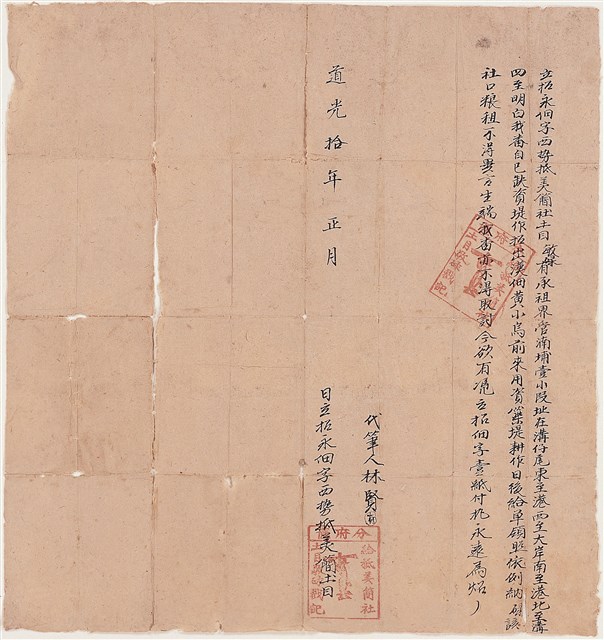 立招永佃字西势抵美簡社土目敏蛛有承祖界管蒲埔壹小段址在溝仔尾東至港西至大岸南至港北至溝
四至明白我番自己缺資堤作招出漢佃黄小烏前来用資築堤耕作日後給单領照依例納
社口粮租不得異言生端我番亦不得取討今欲有凭立招佃字壹紙付扎永遠為炤
道光拾年正月
代筆人林賢
日立招永佃字西势抵美簡土目
分府
給抵美簡社
土目
戳記